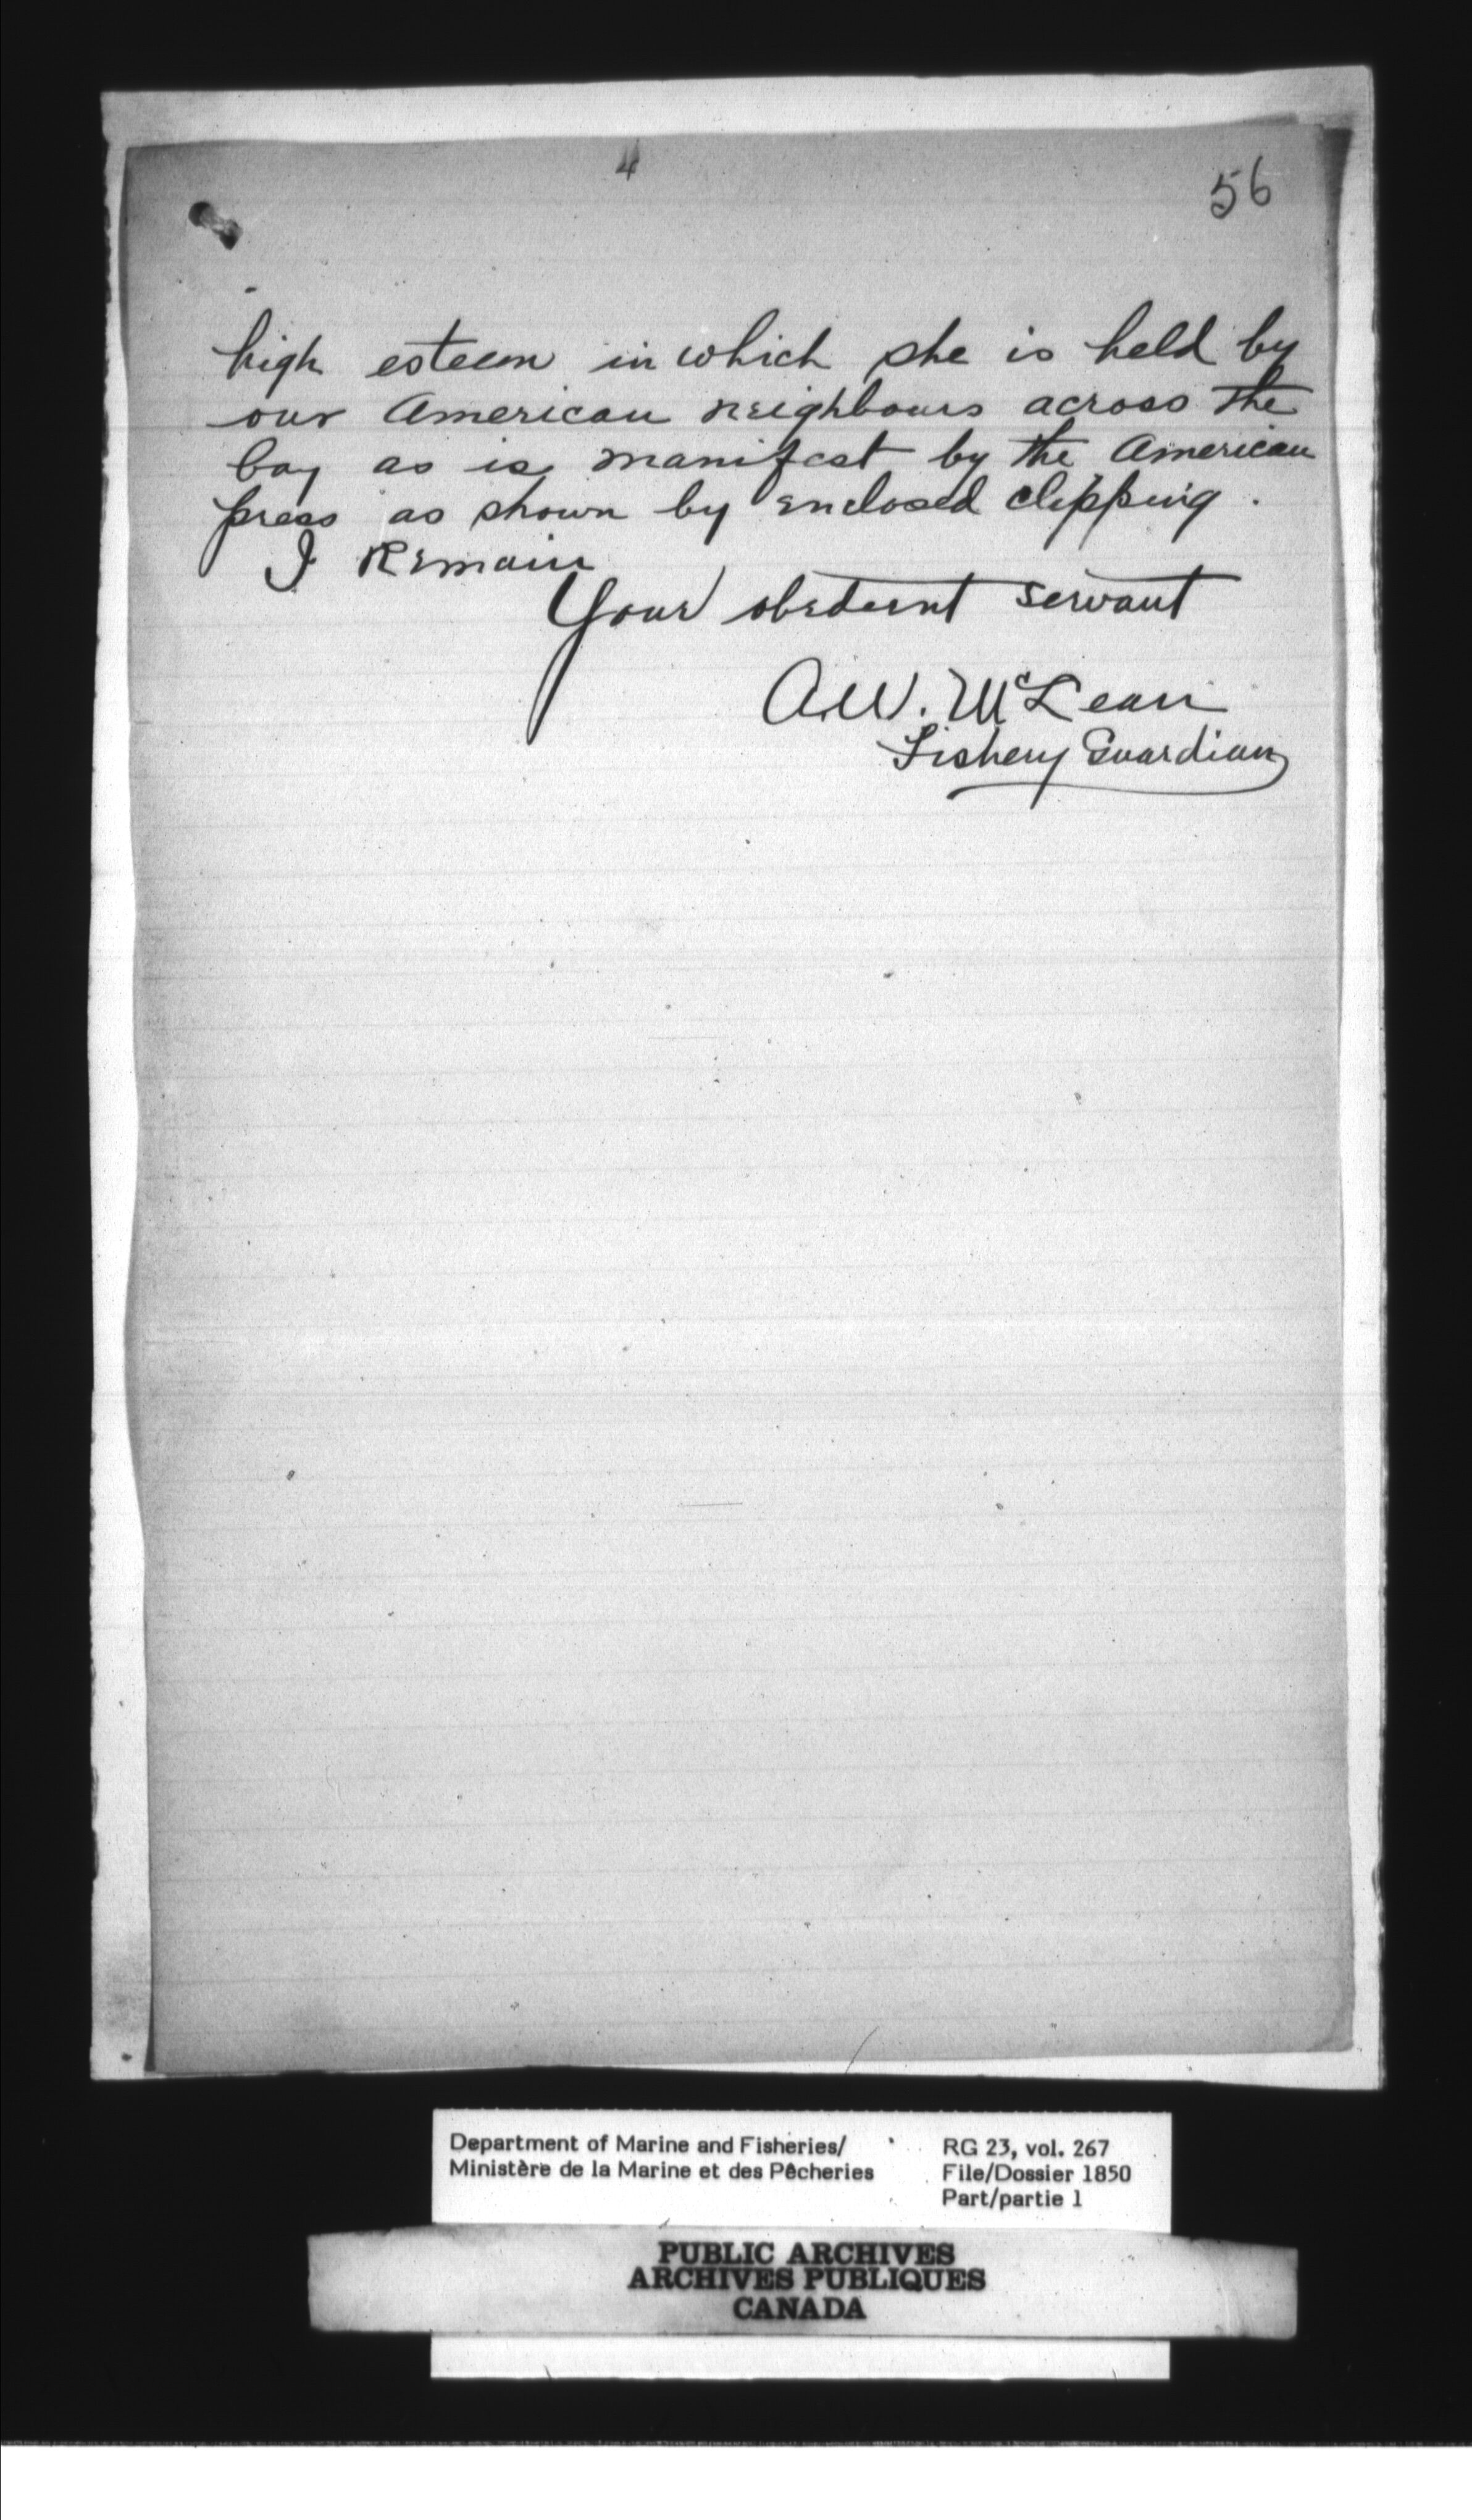 4
56
high esteem in which she is held by
our American neighbours across the
bay as is manifest by the American
press as shown by enclosed clipping.
I Remain
Your obedient servant
A.W. McLean
Fishery Guardian
Department of Marine and Fisheries/
Ministère de la Marine et des Pêcheries
RG 23, vol. 267
File/Dossier 1850
Part/partie 1
PUBLIC ARCHIVES
ARCHIVES PUBLIQUES
CANADA